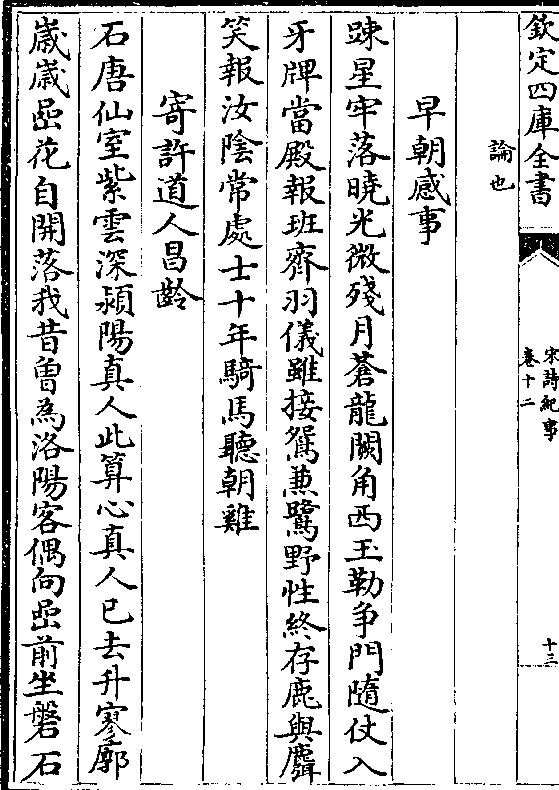 欽定四庫全書
宋詩紀事
卷十二
十三
論也
早朝感事
踈星牢落曉光微殘月蒼龍闕角西玉勒争門隨仗入
牙牌當殿報班齊羽儀雖接鴛兼鷺野性終存鹿與麛
笑報汝陰常處士十年騎馬聽朝雞
寄許道人昌齡
石唐仙室紫雲深潁陽真人此算心真人已去升寥廓
嵗嵗嵒花自開落我昔曽為洛陽客偶向嵒前坐磐石